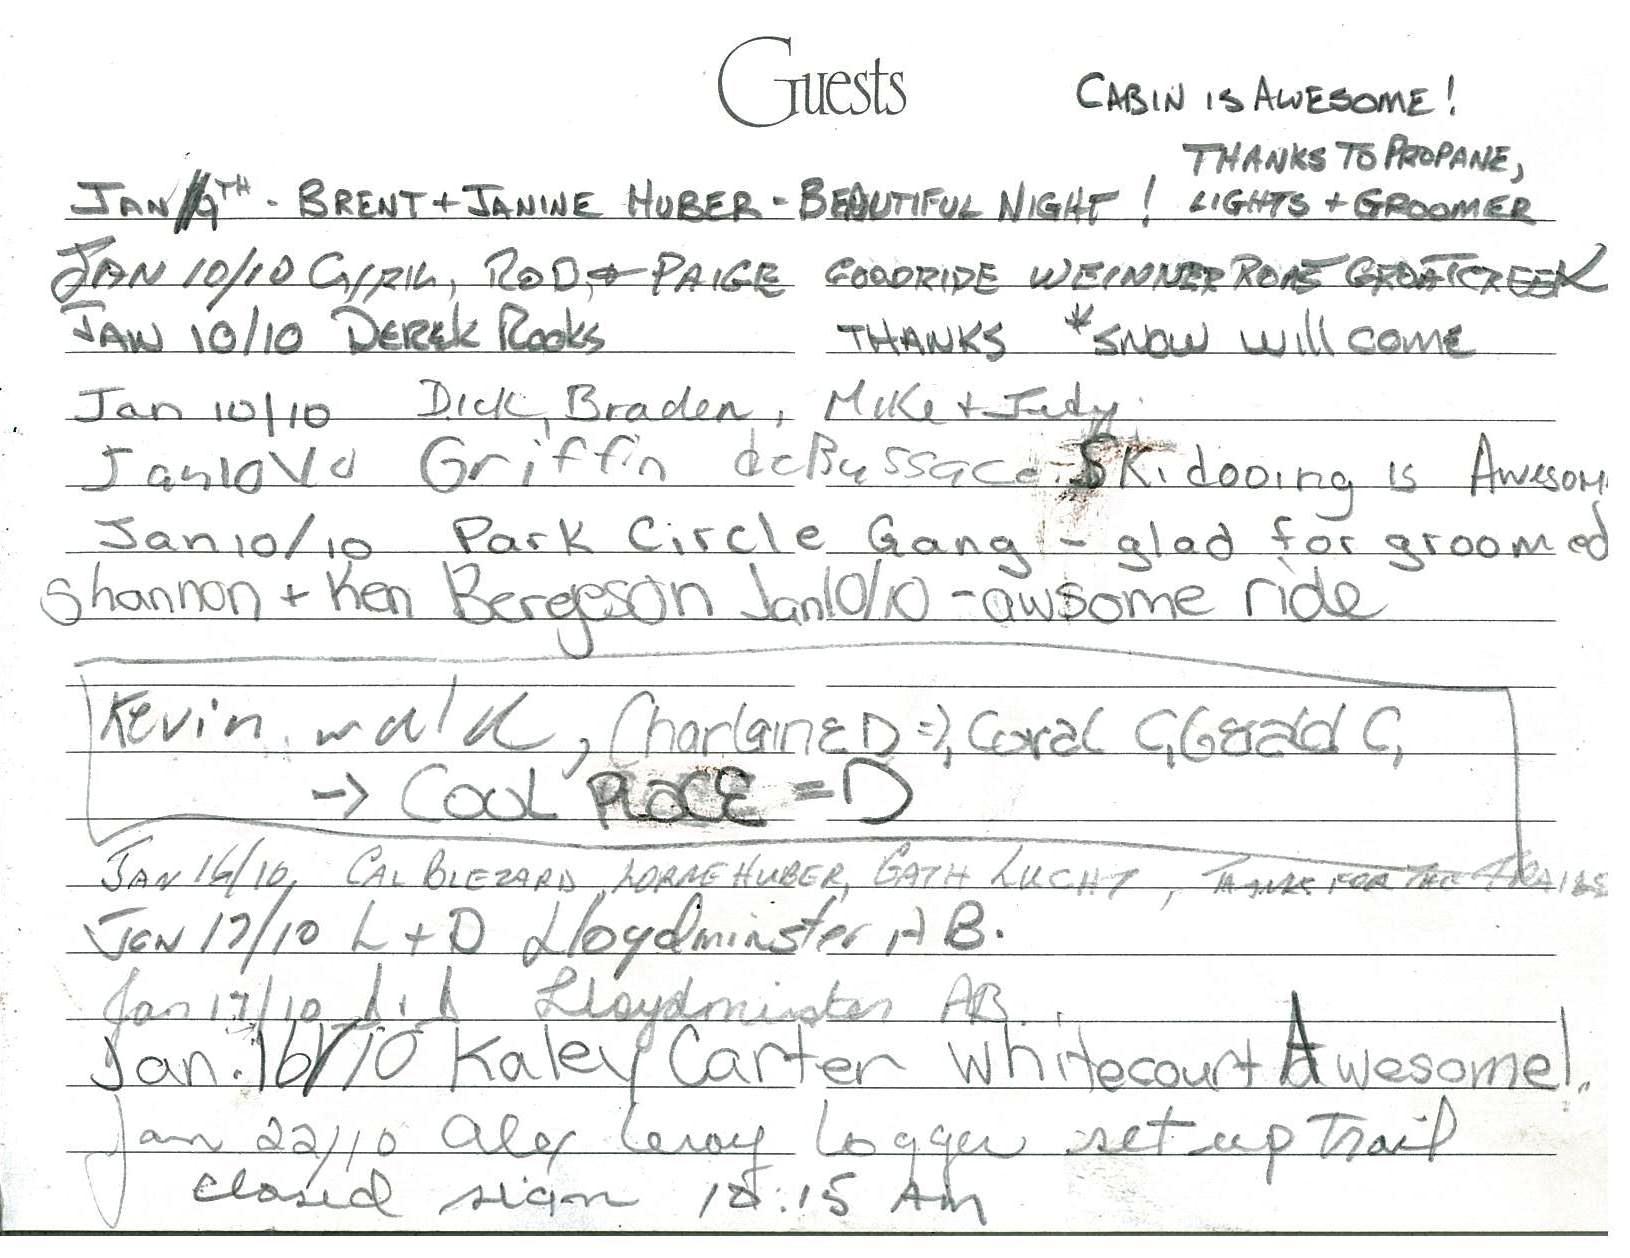 Guests
CABIN IS AWESOME!
THANKS TO PROPANE,
JAN 9TH - BRENT + JANINE HUBER - BEAUTIFUL NIGHT! LIGHTS + GROOMER
JAN 10/10 ROD, + PAIGE GOODRIDE WEINNER ROAST GROATCREEK
JAN 10/10 DEREK ROOKS THANKS *SNOW WILL COME
Jan 10/10 Dick, Braden, Mike + Judy
Jan 10/10 Griffin - SKidooing is Awesom
Jan 10/10 Park Circle Gang - glad for groomed
Shannon + Ken Bergeson Jan 10/10 - awsome ride
Kevin, CharlainE D =), Coral C, Gerald C,
-> COOL PLACE =D
JAN 16/10, CAL BLEZARD, LORNE HUBER, GATH LUCHT, THANKS FOR THE TRAILS
JAN 17/10 L + D Lloydminster AB.
Jan 17/10 Lloydminster AB.
Jan. 16/10 Kaley Carter Whitecourt Awesome!
Jan 22/10 Alex Leroy Logger set up Trail
closed sign 10:15 Am